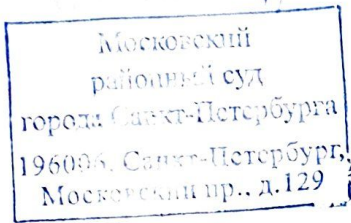 Московский
районный суд
города Санкт-Петербурга
196006, Санкт-Петербург,
Московский пр., д.129